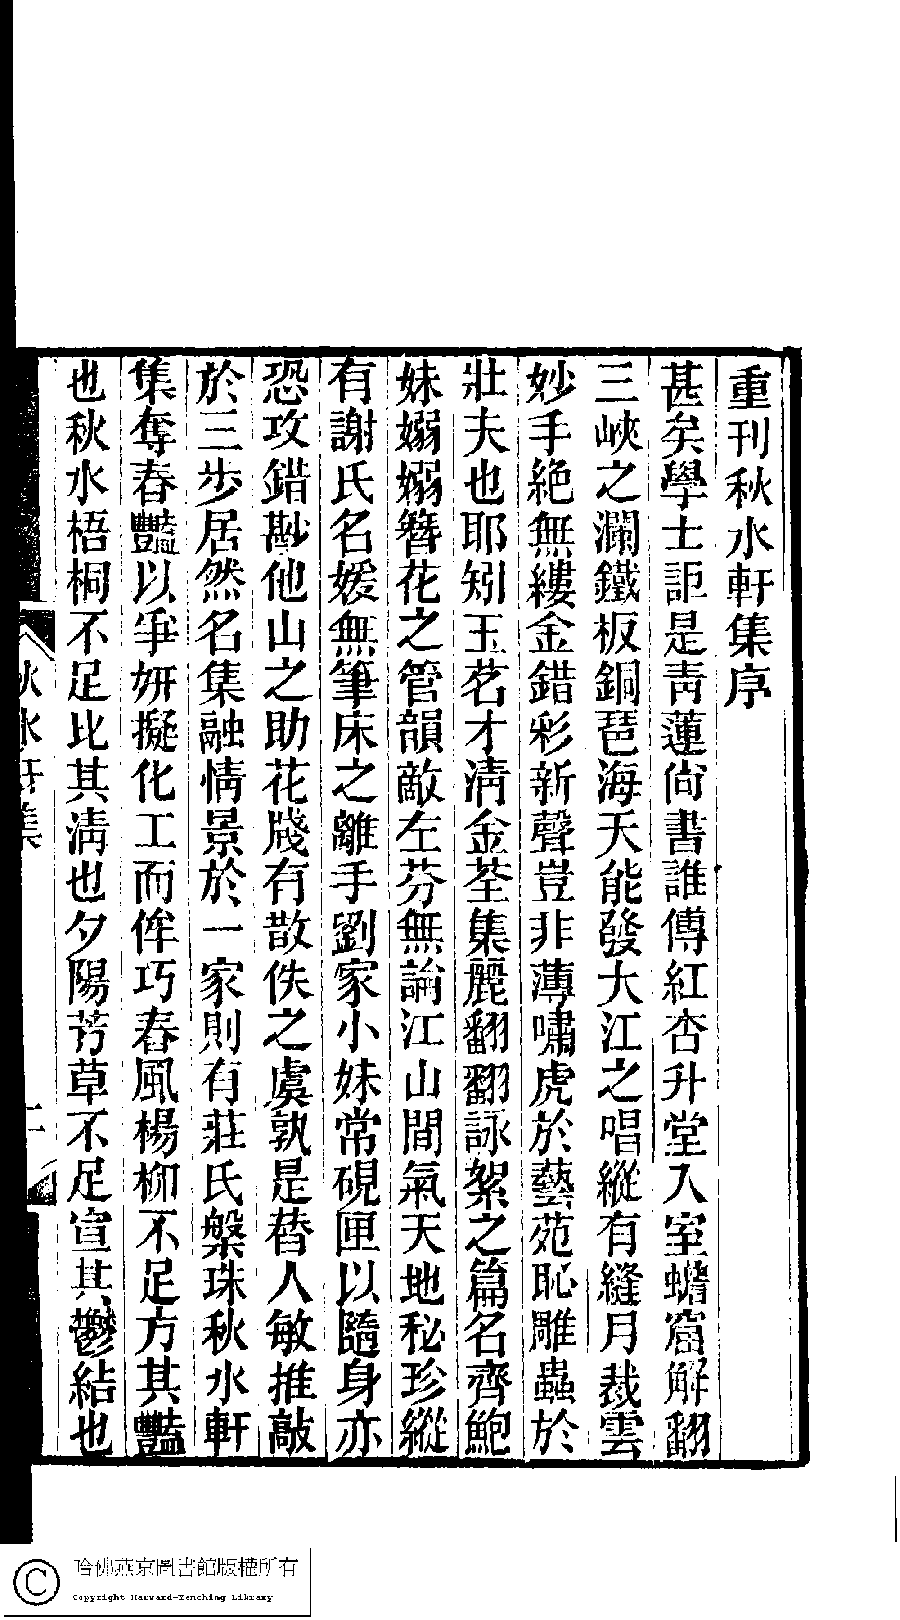 重刊秋水軒集序
甚矣學士詎是靑蓮尙書誰傳紅杏升堂入室蟾窟解翻
三峽之瀾鐵板銅琶海天能發大江之唱縱有縫月裁雲
妙手絶無縷金錯彩新聲豈非薄嘯虎於藝苑恥雕蟲於
壯夫也耶矧玉茗才淸金荃集麗翩翩詠絮之篇名齊鮑
妹嫋嫋簪花之管韻敵左芬無論江山間氣天地秘珍縱
有謝氏名媛無筆床之離手劉家小妹常硯匣以隨身亦
恐攻錯尠他山之助花牋有散佚之虞孰是替人敏推敲
於三步居然名集融情景於一家則有莊氏槃珠秋水軒
集奪春豔以爭姸擬化工而侔巧春風楊柳不足方其豔
也秋水梧桐不足比其淸也夕陽芳草不足宣其鬱結也
秋水軒集
哈佛燕京圖書館版權所有
Copyright Harvard-Yenching Library